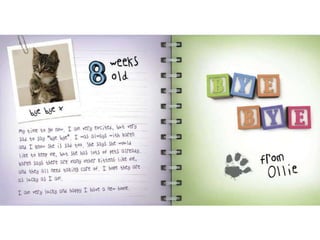 8 weeks
old
bye bye x
My time to go now. I am very excited, but very
sad to say "bye bye". I was always with Karen
and I know she is sad too. She says she would
like to keep me, but she has lots of pets already.
Karen says there are many other kittens like me,
and they all need taking care of. I hope they are
as lucky as I am.
I am very lucky and happy I have a new home.
BYE
BYE
from
Ollie